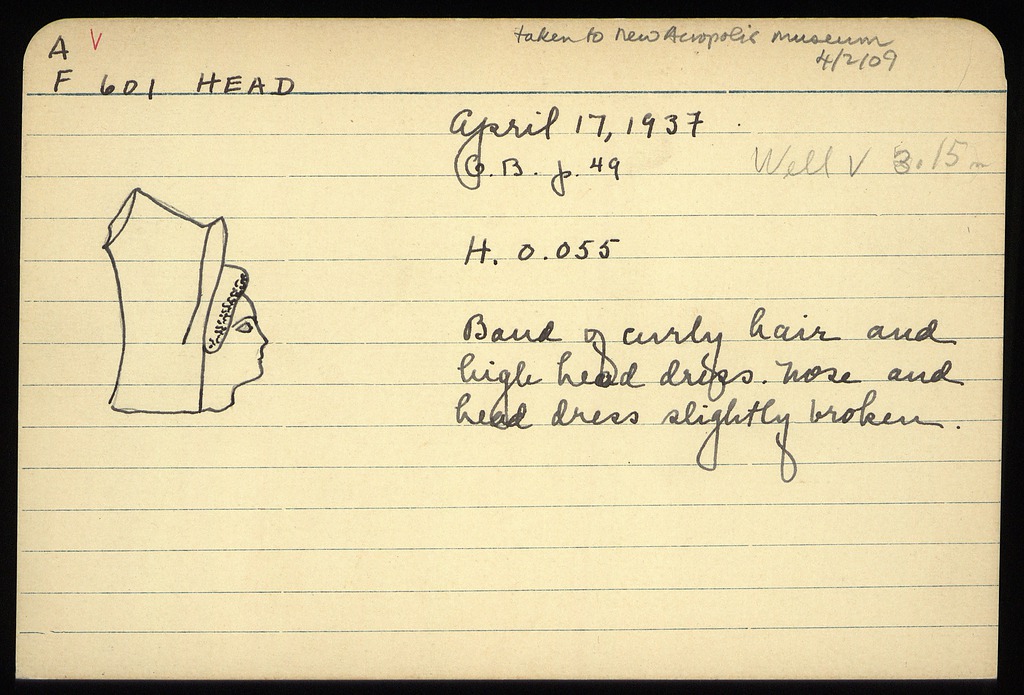 taken to new Acropolis museum
4/2/09
A V
F 601 HEAD
April 17, 1937
C.B. p. 49
Well V 3.15 m
H. 0.055
Band of curly hair and
high head dress. Nose and
head dress slightly broken.